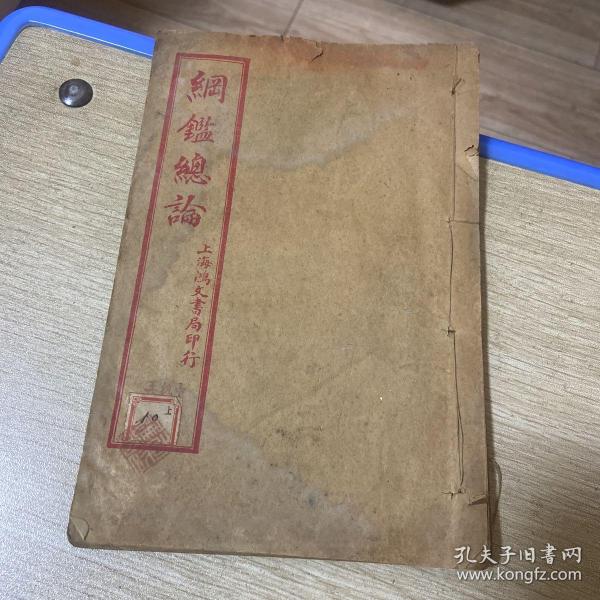 綱鑑總論
上海鴻文書局印行
上
10
孔夫子旧書网
www.kongfz.com